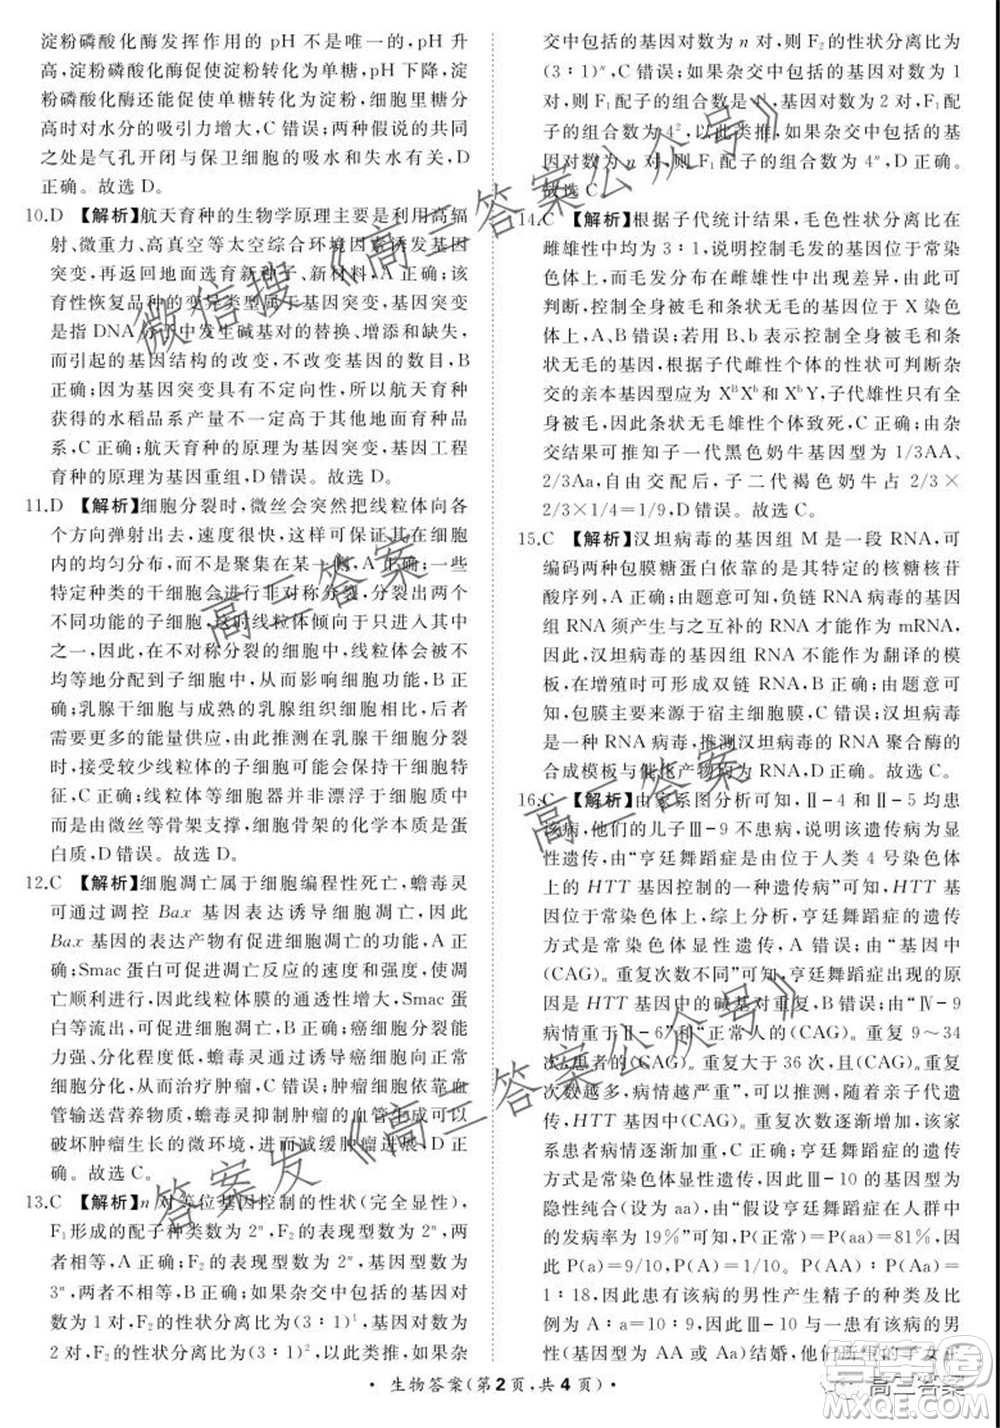 淀粉磷酸化酶发挥作用的 pH 不是唯一的，pH 升
高，淀粉磷酸化酶促使淀粉转化为单糖，pH 下降，淀
粉磷酸化酶还能促使单糖转化为淀粉，细胞里糖分
高时对水分的吸引力增大，C 错误；两种假说的共同
之处是气孔开闭与保卫细胞的吸水和失水有关，D
正确。故选 D。
10.D 【解析】航天育种的生物学原理主要是利用高辐
射、微重力、高真空等太空综合环境因素诱发基因
突变，再返回地面选育新种子、新材料，A 正确；该
育性恢复品种的变异类型属于基因突变，基因突变
是指 DNA 分子中发生碱基对的替换、增添和缺失，
而引起的基因结构的改变，不改变基因的数目，B
正确；因为基因突变具有不定向性，所以航天育种
获得的水稻品系产量不一定高于其他地面育种品
系，C 正确；航天育种的原理为基因突变，基因工程
育种的原理为基因重组，D 错误。故选 D。
11.D 【解析】细胞分裂时，微丝会突然把线粒体向各
个方向弹射出去，速度很快，这样可保证线粒体
的均匀分布，A 正确；
一些特定种类的干细胞会进行非对称分裂，分裂出两个
不同功能的子细胞，这时线粒体分布不均是原因
之一，因此，在不对称分裂的细胞中，线粒体会被不
均等地分配到子细胞中，从而影响细胞功能，B 正
确；乳腺干细胞与成熟的乳腺组织细胞相比，后者
需要的能量更多，由此推测在乳腺干细胞分裂
时，接受较少线粒体的子细胞可能会保持干细胞特
征，C 正确；线粒体等细胞器并非漂浮于细胞质中
而是由微丝等骨架支撑，细胞骨架的化学本质是蛋
白质，D 错误。故选 D。
12.C 【解析】细胞凋亡属于细胞编程性死亡，蟾毒灵
可通过调控 Bax 基因表达诱导细胞凋亡，因此
Bax 基因的表达产物有促进细胞凋亡的功能，A 正
确；Smac 蛋白可促进凋亡反应的速度和强度，使凋
亡顺利进行，因此线粒体膜的通透性增大，Smac
蛋白的量增加，B 正确；癌症细胞分裂能
力强、分化程度低，蟾毒灵通过促进癌细胞向正常
细胞分化，从而治疗肿瘤，C 错误；肿瘤细胞依靠血
管输送营养物质，蟾毒灵抑制肿瘤的血管生成可以
破坏肿瘤生长的微环境，进而减缓肿瘤进展，D 正
确。故选 C。
13.C 【解析】n 对等位基因控制的性状（完全显性），
F₁形成的配子种类数为 2ⁿ，F₂的表现型数为 2ⁿ，两
者相等，A 正确；F₂的表现型数为 2ⁿ，基因型数为
3ⁿ，两者不相等，B 正确；如果杂交中包括的基因对数为
1 对，F₂的性状分离比为（3∶1）¹，如果杂交中包括的基因对数为
2 对，F₂的性状分离比为（3∶1）²，以此类推，如果杂
交中包括的基因对数为 n 对，则 F₂的性状分离比为
（3∶1）ⁿ，C 错误；如果杂交中包括的基因对数为 1
对，则 F₁配子的组合数是 4¹，基因对数为 2 对，F₁配子
的组合数为 4²，以此类推，如果杂交中包括的基
因对数为 n 对，则 F₁配子的组合数为 4ⁿ，D 正确。
故选 C。
14.C 【解析】根据子代统计结果，毛色性状分离比在
雌雄性中均为 3∶1，说明控制毛发的基因位于常染
色体上，而毛发分布在雌雄性中出现差异，由此可
判断，控制全身被毛和条状无毛的基因位于 X 染色
体上，A、B 错误；若用 B、b 表示控制全身被毛和条
状无毛的基因，根据子代雌性个体的性状可判断杂
交的亲本基因型应为 XᴮXᵇ和 XᵇY，子代雄性只有
全身被毛，因此条状无毛雄性个体致死，C 正确；由杂交
结果可知子一代黑色奶牛基因型为 1/3AA、
2/3Aa，自由交配后，子二代褐色奶牛占 2/3×
2/3×1/4＝1/9，D 错误。故选 C。
15.C 【解析】汉坦病毒的基因组 M 是一段 RNA，可
编码两种包膜糖蛋白依靠的是其特定的核糖核苷
酸序列，A 正确；由题意可知，负链 RNA 病毒的基因
组 RNA 须产生与之互补的 RNA 才能作为 mRNA，
因此，汉坦病毒的基因组 RNA 不能作为翻译的模
板，在增殖时可形成双链 RNA，B 正确；由题意可
知，包膜主要来源于宿主细胞膜，C 错误；汉坦病毒
是一种 RNA 病毒，推测汉坦病毒的 RNA 聚合酶的
合成模板与催化产物均为 RNA，D 正确。故选 C。
16.C 【解析】由家系图分析可知，Ⅱ-4 和 Ⅱ-5 均患
该病，他们的儿子Ⅲ-9 不患病，说明该遗传病为显
性遗传，由“亨廷顿舞蹈症是由于人类 4 号染色体上
的 HTT 基因突变的一种遗传病”可知，HTT
基因位于常染色体上，综上分析，亨廷顿舞蹈症的遗传
方式是常染色体显性遗传，A 错误；由“基因中
（CAG）ₙ重复次数不同”可知，亨廷顿舞蹈症出现的原
因是 HTT 基因中的碱基对重复，B 错误；由“Ⅳ-9
病情重于Ⅱ-6”和“正常人的（CAG）ₙ重复 9～34
次，患者的（CAG）ₙ重复大于 36 次，且（CAG）ₙ重复
次数越多，病情越严重”可以推测，随着亲子代遗
传，HTT 基因中（CAG）ₙ重复次数逐渐增加，该家
系患者病情可能逐渐增重，C 正确；亨廷顿舞蹈症的遗传
方式是常染色体显性遗传，所以Ⅲ-10 的基因型为
隐性纯合（设为 aa），由“假设亨廷顿舞蹈症在人群中
的发病率为 19%”可知，P（正常）＝P（aa）＝81%，因
此 P（a）＝9/10，P（A）＝1/10，P（AA）∶P（Aa）＝
1∶18，因此患有该病的男性产生精子的种类及比
例为 A∶a＝10∶9，因此Ⅲ-10 与一个患有该病的男
性（基因型为 AA 或 Aa）结婚，他们所生的子女正
· 生物答案（第 2 页，共 4 页） ·
微信搜《高三答案公众号》
高三答案
高三答案
答案发《高三答案公众号》
高三答案